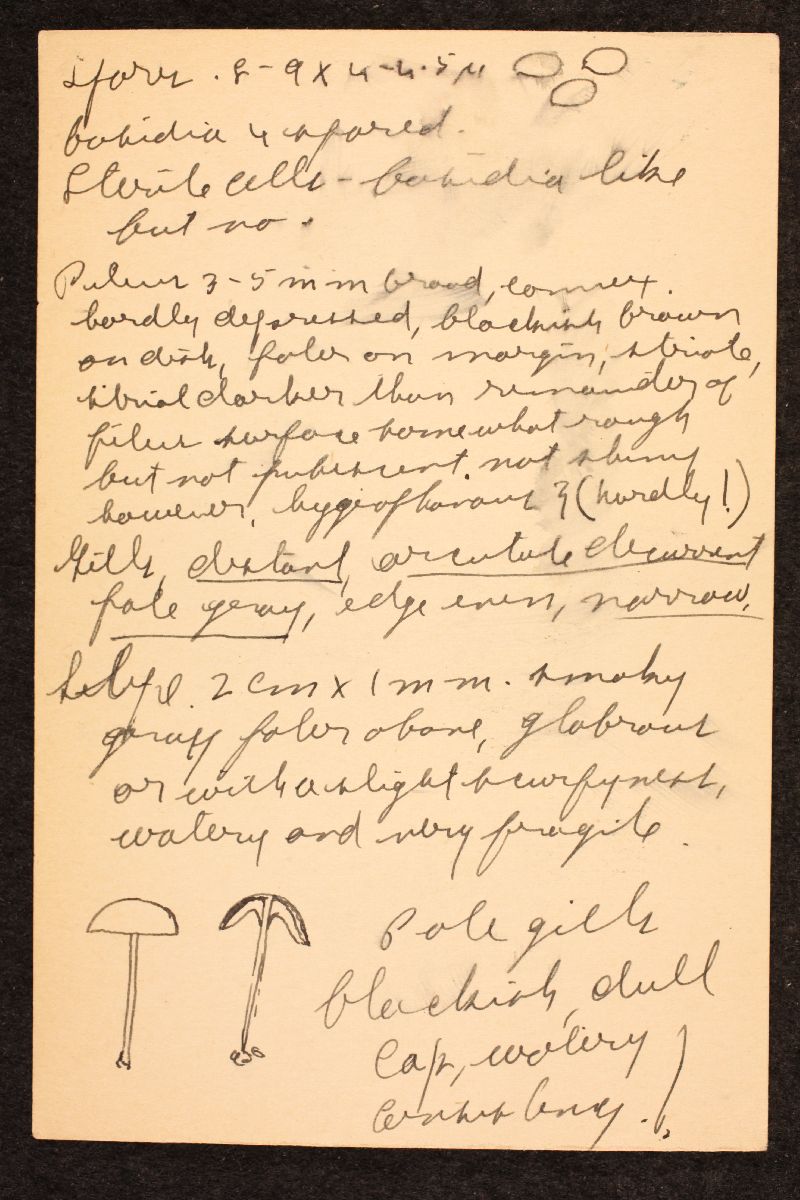 Spores . 8-9 x 4-4.5 µ
basidia 4 spored.
Sterile cells - basidia like
but no .
Pileus 3-5 mm broad, convex.
hardly depressed, blackish brown
on disk, paler on margin, striate,
striae darker than remainder of
pileus surface somewhat rough
but not pubescent. not slimy
however, hygrophanous ? (hardly!)
Gills, distant, arcuate decurrent
pale gray, edge even, narrow.
Stipe. 2 cm x 1 mm. smoky
gray paler above, glabrous
or with a slight scurfyness,
watery and very fragile.
Pale gills
blackish, dull
Cap, watery
consistency . !